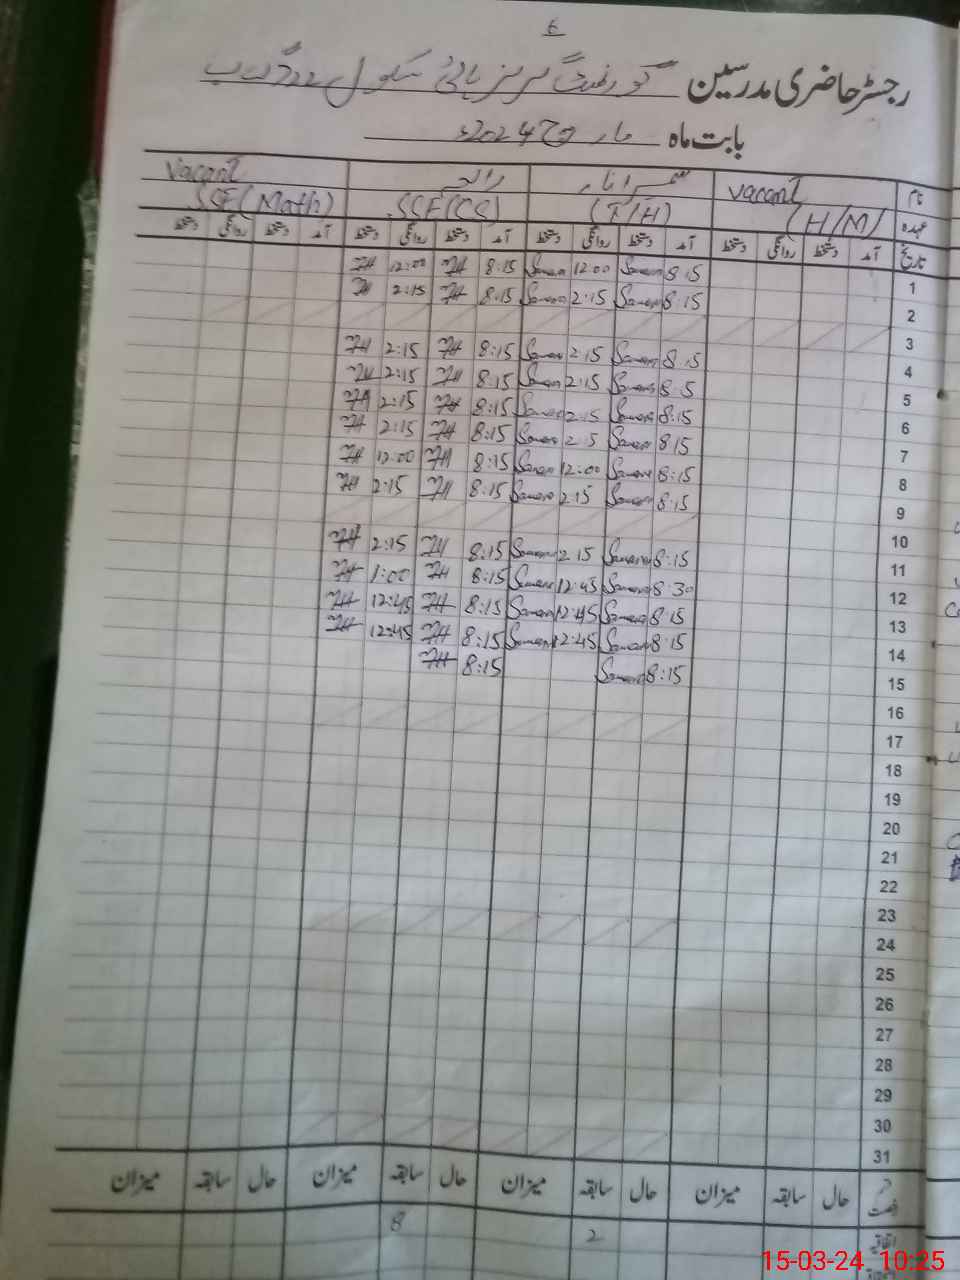 6
رجسٹر حاضری مدرسین گورنمنٹ گرلز ہائی سکول
بابت ماہ مارچ 2024ء
نام vacant سمرا نار رالہ vacant
عہدہ (H/M) (I/H) SSE(CS) SSE(Math)
تاریخ آمد دستخط روانگی دستخط آمد دستخط روانگی دستخط آمد دستخط روانگی دستخط آمد دستخط روانگی دستخط
1 8:15 Samara 12:00 Samara 8:15 FH 12:00 FH
2 8:15 Samara 2:15 Samara 8:15 FH 2:15 FH
3
4 8:15 Samara 2:15 Samara 8:15 FH 2:15 FH
5 8:15 Samara 2:15 Samara 8:15 FH 2:15 FH
6 8:15 Samara 2:15 Samara 8:15 FH 2:15 FH
7 8:15 Samara 2:15 Samara 8:15 FH 2:15 FH
8 8:15 Samara 12:00 Samara 8:15 FH 12:00 FH
9 8:15 Samara 2:15 Samara 8:15 FH 2:15 FH
10
11 8:15 Samara 2:15 Samara 8:15 FH 2:15 FH
12 8:30 Samara 12:45 Samara 8:15 FH 1:00 FH
13 8:15 Samara 12:45 Samara 8:15 FH 12:45 FH
14 8:15 Samara 12:45 Samara 8:15 FH 12:45 FH
15 8:15 Samara 8:15 FH
16
17
18
19
20
21
22
23
24
25
26
27
28
29
30
31
حال سابقہ میزان حال سابقہ میزان حال سابقہ میزان حال سابقہ میزان
اتفاقیہ 2 8
15-03-24 10:25